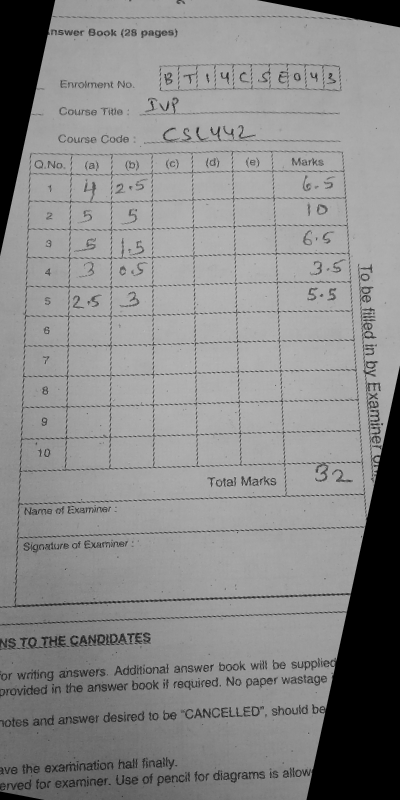 nswer Book (28 pages)
Enrolment No. BT14CSE043
Course Title : IVP
Course Code : CSL442
Q.No. (a) (b) (c) (d) (e) Marks
1 4 2.5 6.5
2 5 5 10
3 5 1.5 6.5
4 3 0.5 3.5
5 2.5 3 5.5
6
7
8
9
10
Total Marks 32
To be filled in by Examiner
Name of Examiner :
Signature of Examiner :
NS TO THE CANDIDATES
for writing answers. Additional answer book will be supplied
provided in the answer book if required. No paper wastage
notes and answer desired to be "CANCELLED", should be
ave the examination hall finally.
erved for examiner. Use of pencil for diagrams is allow